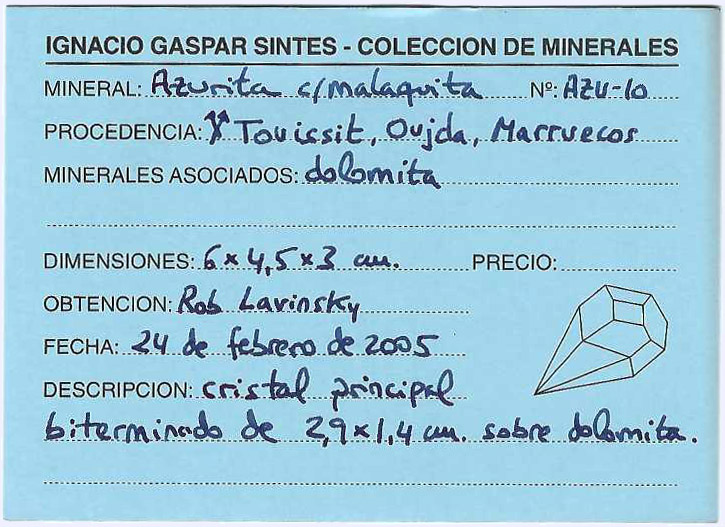 IGNACIO GASPAR SINTES - COLECCION DE MINERALES
MINERAL: Azurita c/malaquita Nº: AZU-10
PROCEDENCIA: ⚒ Touissit, Oujda, Marruecos
MINERALES ASOCIADOS: dolomita
DIMENSIONES: 6 x 4,5 x 3 cm. PRECIO:
OBTENCION: Rob Lavinsky
FECHA: 24 de febrero de 2005
DESCRIPCION: cristal principal
biterminado de 2,9 x 1,4 cm. sobre dolomita.